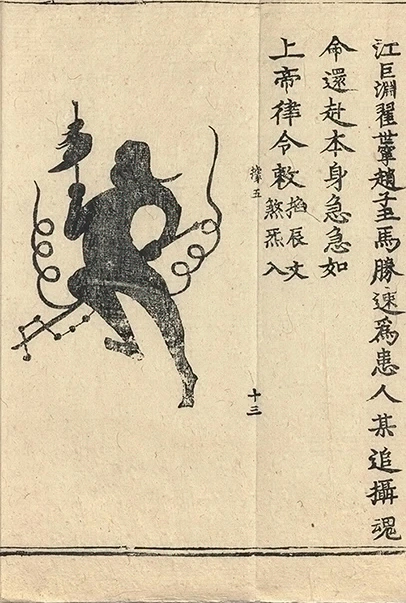 江巨淵翟世肇趙子玉馬勝速爲患人某追攝魂
命還赴本身急急如
上帝律令敕
掐辰文
煞炁入
五
十三